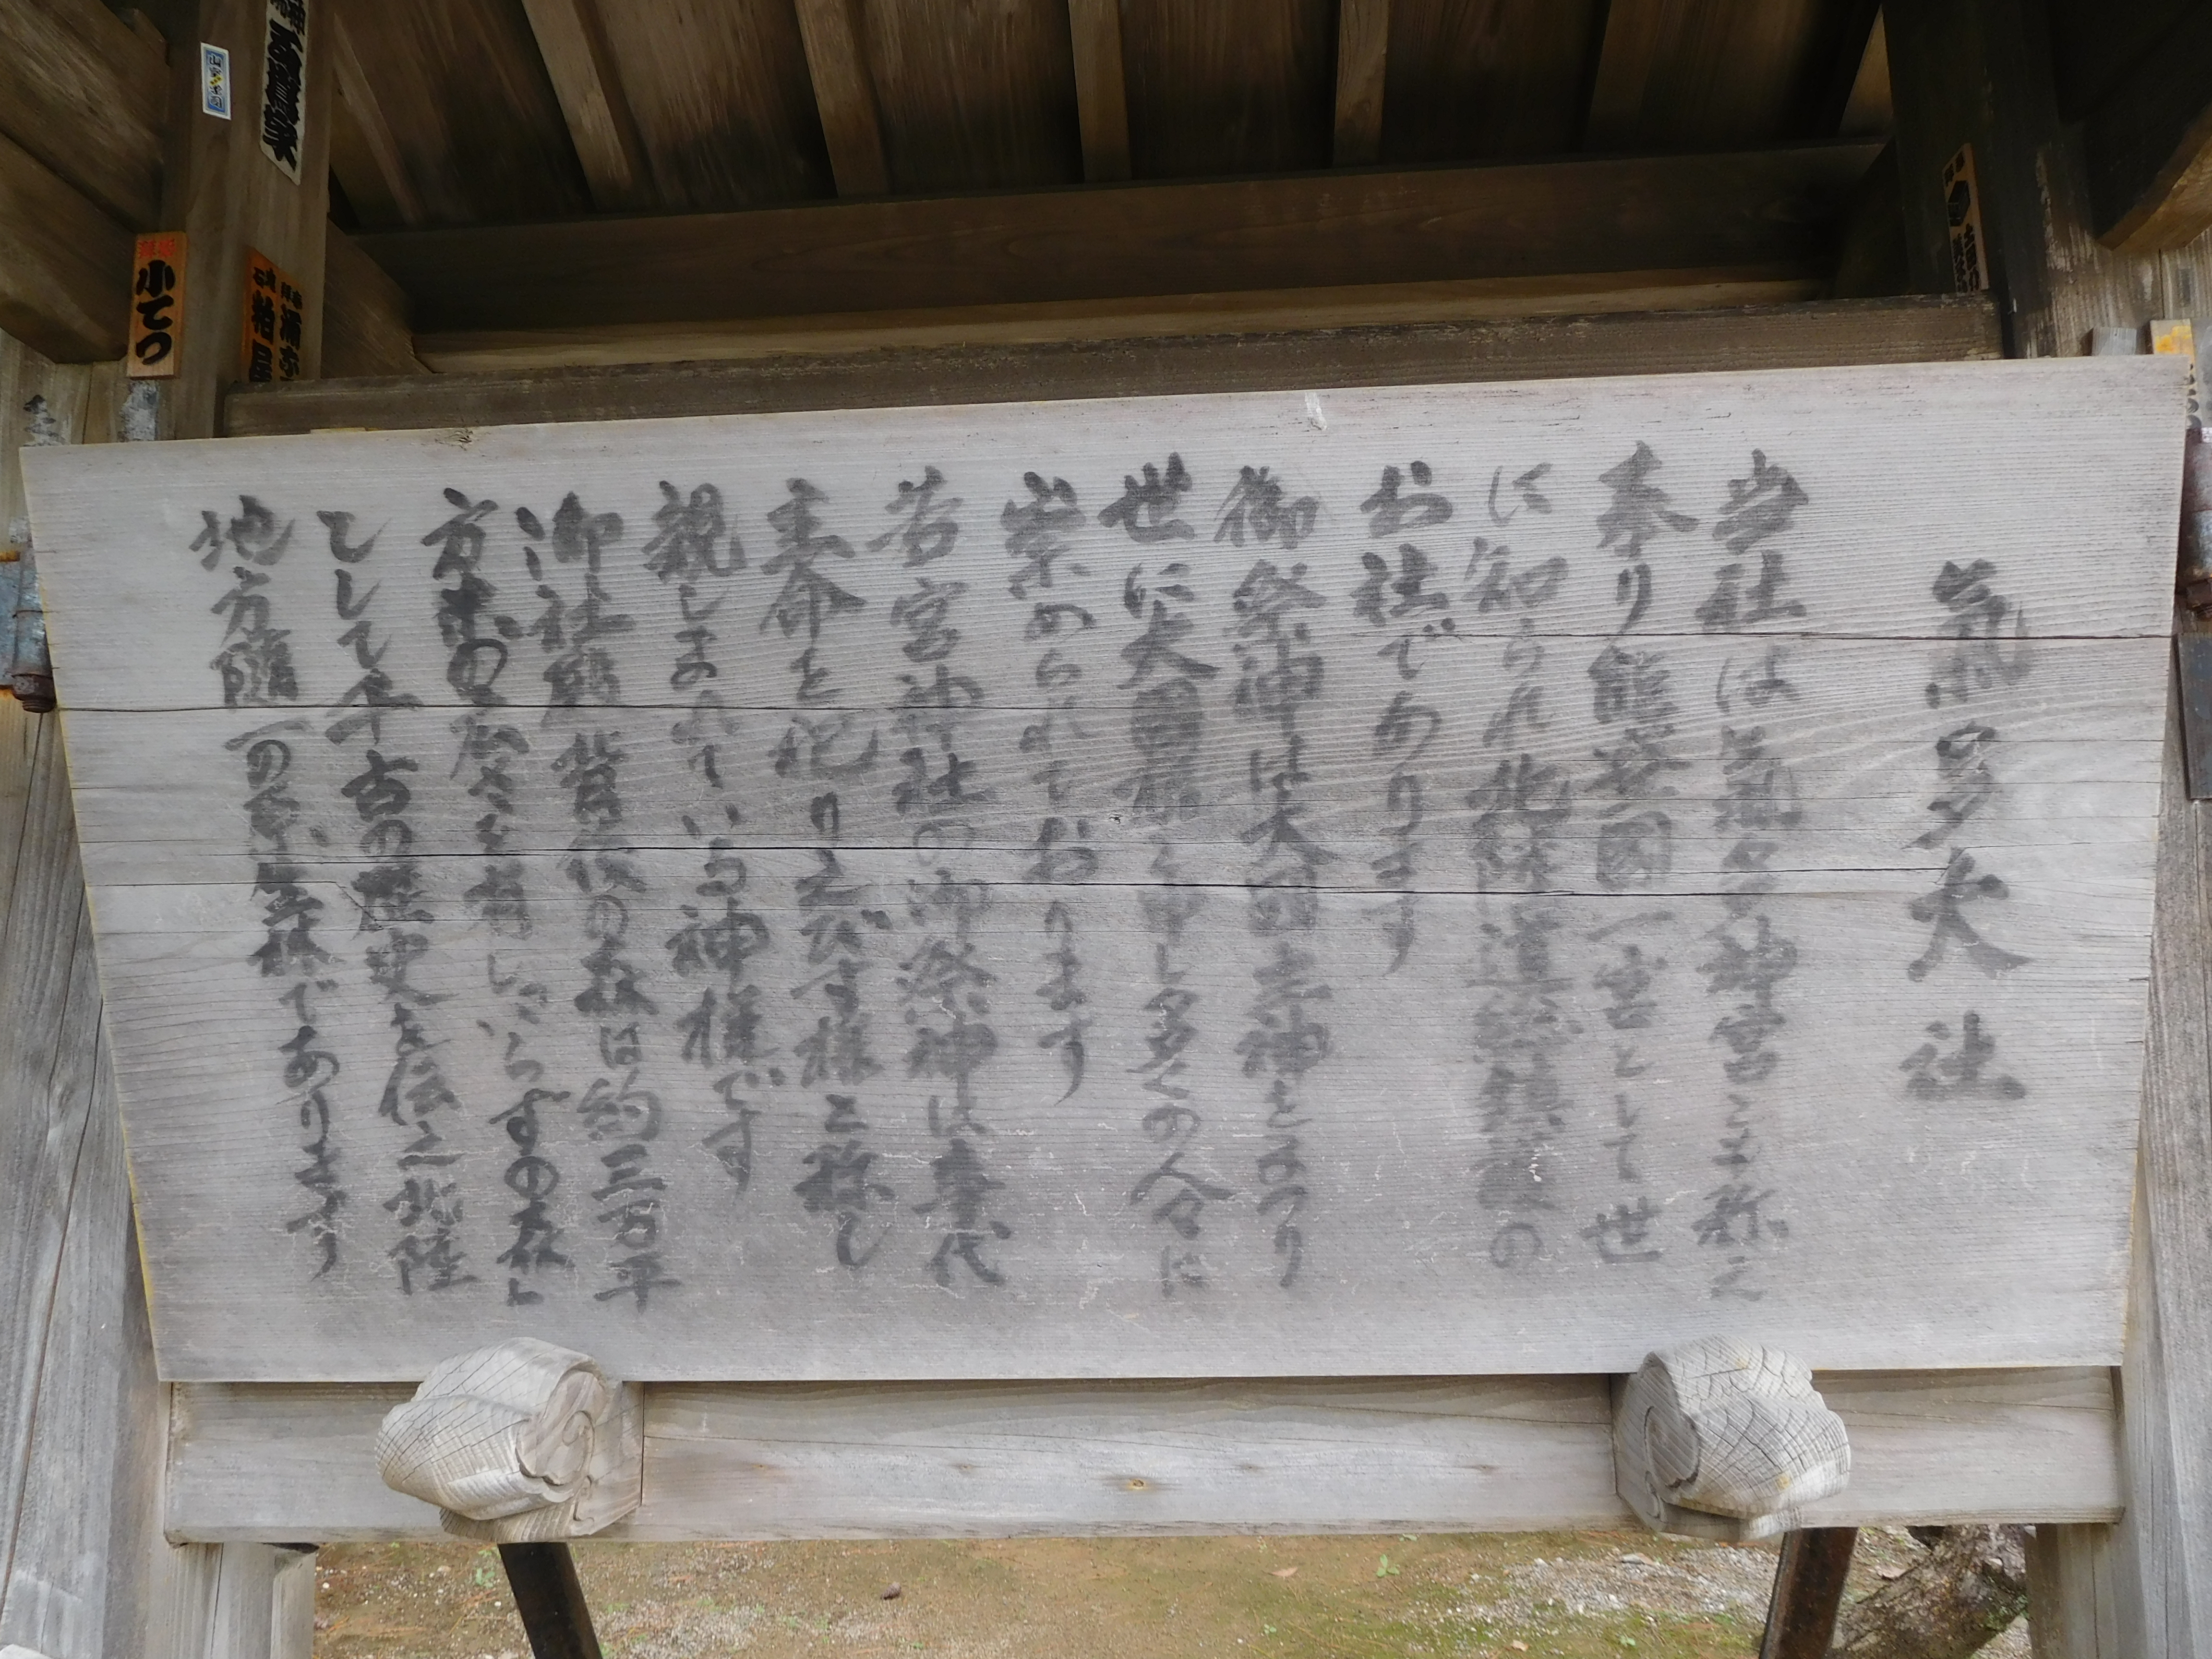 氣多大社
当社は氣多神宮と称え
奉り能登國一宮として世
に知られ北陸道総鎮護の
お社であります
御祭神は大国主神をまつり
世に大国様と申し多くの人々に
崇められております
若宮神社の御祭神は事代
主命を祀りえびす様と称し
親しまれている神様です
御社殿背後の森は約三万平
方米の広さを有しいらずの森と
して千古の歴史を伝え北陸
地方随一の原生林であります
小てつ
柏屋